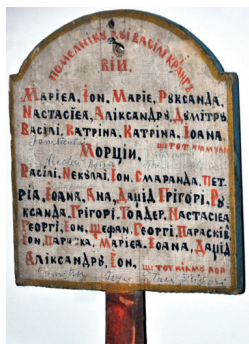 ПОМЕЛНІКꙊ ЛꙊІ ВАСІЛІ КРАЧꙊ
ВІИ.
МАРІЕА, ІОН. МАРІЕ, РꙊКСАНДА,
НАСТАСІЕА, АЛІКСАНДРꙊ, ДꙊМІТРꙊ
ВАСІЛІ, КАТРІНА, КАТРІНА, ІОАНА.
ШІ ТОТ НІАМꙊЛ
МОРЦІИ.
ВАСІЛІ, НЕКꙊЛАІ, ІОН, СМАРАНДА, ПЕТ-
РІА, ІОАНА, АНА, ДАЦІД ГРІГОРІ, РꙊ
КСАНДА, ГРІГОРІ, ТОАДЕР, НАСТАСІЕА
ГЕОРГІ, ІОН, ШЕФАН, ГЕОРГІ, ПАРАСКІВ
ІОН, МАРІЕА, ІОАНА, ДАЦІД
АЛІКСАНДРꙊ, ІОН.
ШІ ТОТ НІАМꙊ ЛОР